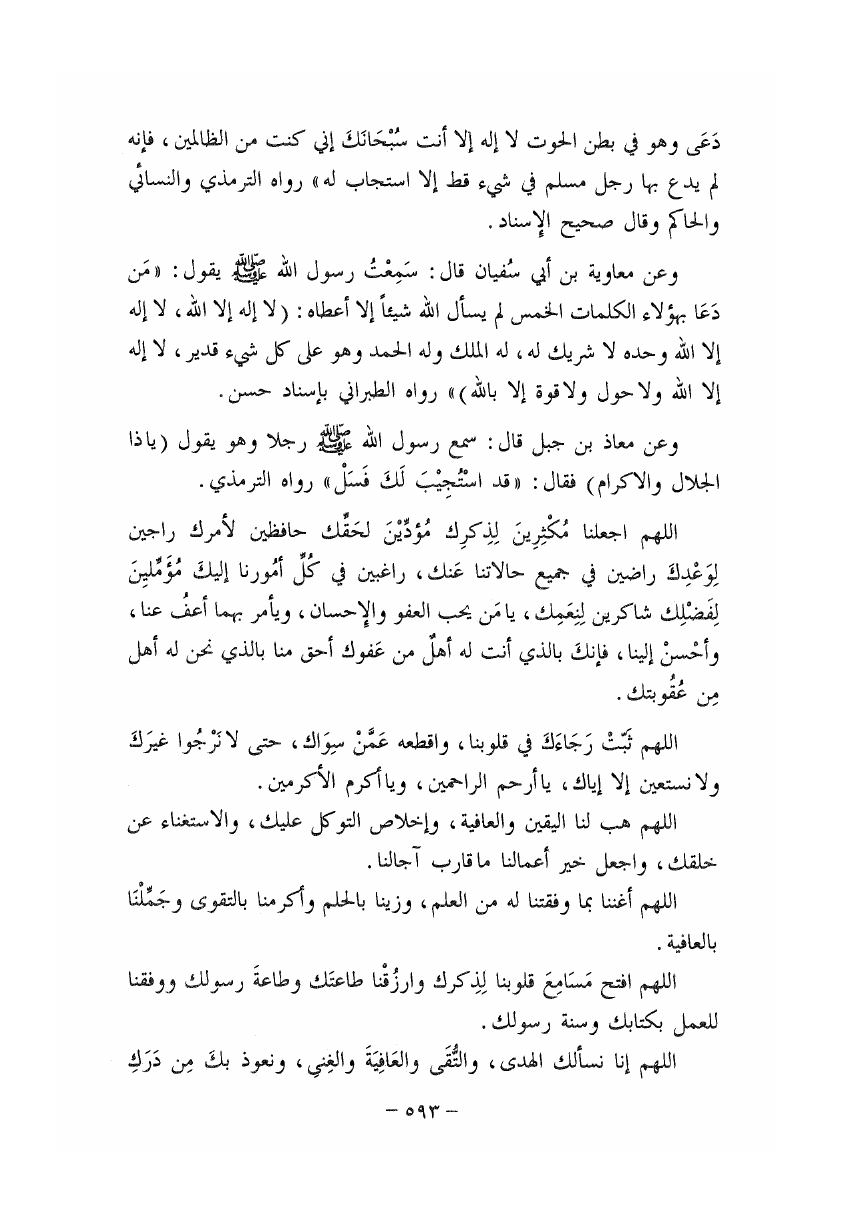 دَعَى وهو في بطن الحوت لا إله إلا أنت سُبْحَانَكَ إني كنت من الظالمين ، فإنه
لم يدع بها رجل مسلم في شيء قط إلا استجاب له » رواه الترمذي والنسائي
والحاكم وقال صحيح الإسناد .
وعن معاوية بن أبي سُفيان قال : سَمِعْتُ رسول الله ﷺ يقول : « مَن
دَعَا بهؤلاء الكلمات الخمس لم يسأل الله شيئاً إلا أعطاه : ( لا إله إلا الله ، لا إله
إلا الله وحده لا شريك له ، له الملك وله الحمد وهو على كل شيء قدير ، لا إله
إلا الله ولا حول ولا قوة إلا بالله ) » رواه الطبراني بإسناد حسن .
وعن معاذ بن جبل قال : سمع رسول الله ﷺ رجلا وهو يقول ( ياذا
الجلال والاكرام ) فقال : « قد اسْتُجِيْبَ لَكَ فَسَلْ » رواه الترمذي .
اللهم اجعلنا مُكْثِرِينَ لِذِكرِك مُؤدِّيْنَ لحَقِّك حافظين لأمرك راجين
لِوَعْدِكَ راضين في جميع حالاتنا عَنك ، راغبين في كُلِّ أمُورنا إليكَ مُؤَمِّلينَ
لِفَضْلِك شاكرين لِنِعَمِك ، يا مَن يحب العفو والإحسان ، ويأمر بهما أعفُ عنا ،
وأحْسنْ إلينا ، فإنكَ بالذي أنت له أهلٌ من عَفوك أحق منا بالذي نحن له أهل
مِن عُقُوبتك .
اللهم ثَبّتْ رَجَاءَكَ في قلوبنا ، واقطعه عَمَّنْ سِوَاك ، حتى لا نَرْجُوا غيرَكَ
ولا نستعين إلا إياك ، يا أرحم الراحمين ، ويا أكرم الأكرمين .
اللهم هب لنا اليقين والعافية ، وإخلاص التوكل عليك ، والاستغناء عن
خلقك ، واجعل خير أعمالنا ما قارب آجالنا .
اللهم أغننا بما وفقتنا له من العلم ، وزينا بالحلم وأكرمنا بالتقوى وجَمِّلْنَا
بالعافية .
اللهم افتح مَسَامِعَ قلوبنا لِذِكرك وارزُقْنا طاعتَك وطاعةَ رسولك ووفقنا
للعمل بكتابك وسنة رسولك .
اللهم إنا نسألك الهدى ، والتُّقَى والعَافِيَةَ والغِنِي ، ونعوذ بكَ مِن دَرَكِ
– ٥٩٣ –